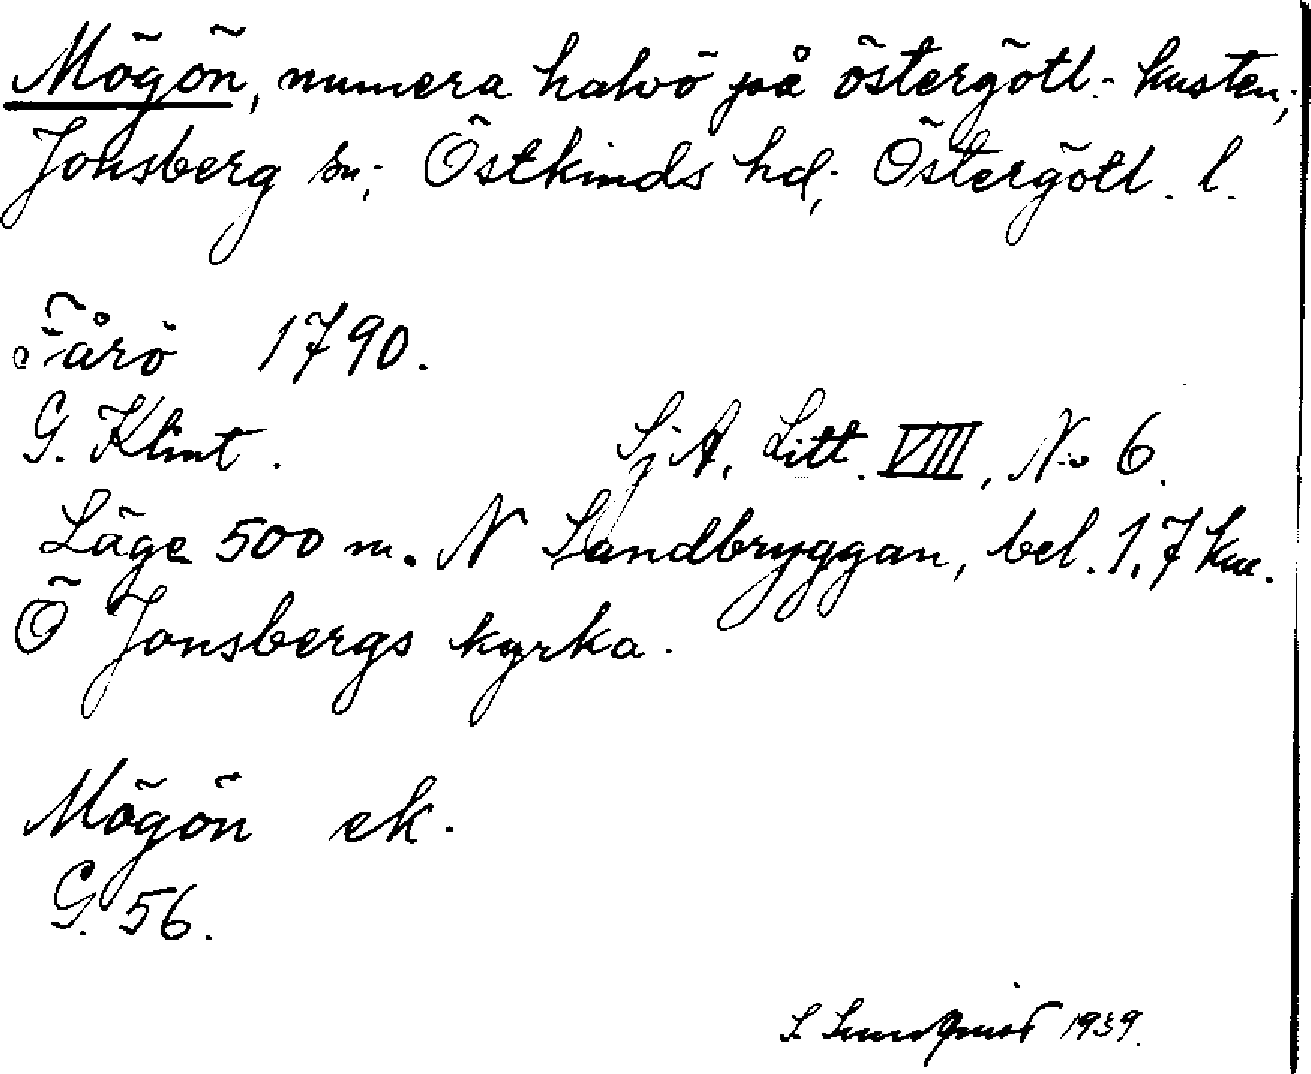 Mögön, numera halvö på östergötl. kusten,
Jonsberg sn; Östkinds hd; Östergötl. l.
Fårö 1790.
G. Klint. SjA. Litt. VIII, No 6.
Läge 500 m. N Sandbryggan, bel. 1,7 km.
Ö Jonsbergs kyrka.
Mögön ek.
G. 56.
S Lundquist 1939.